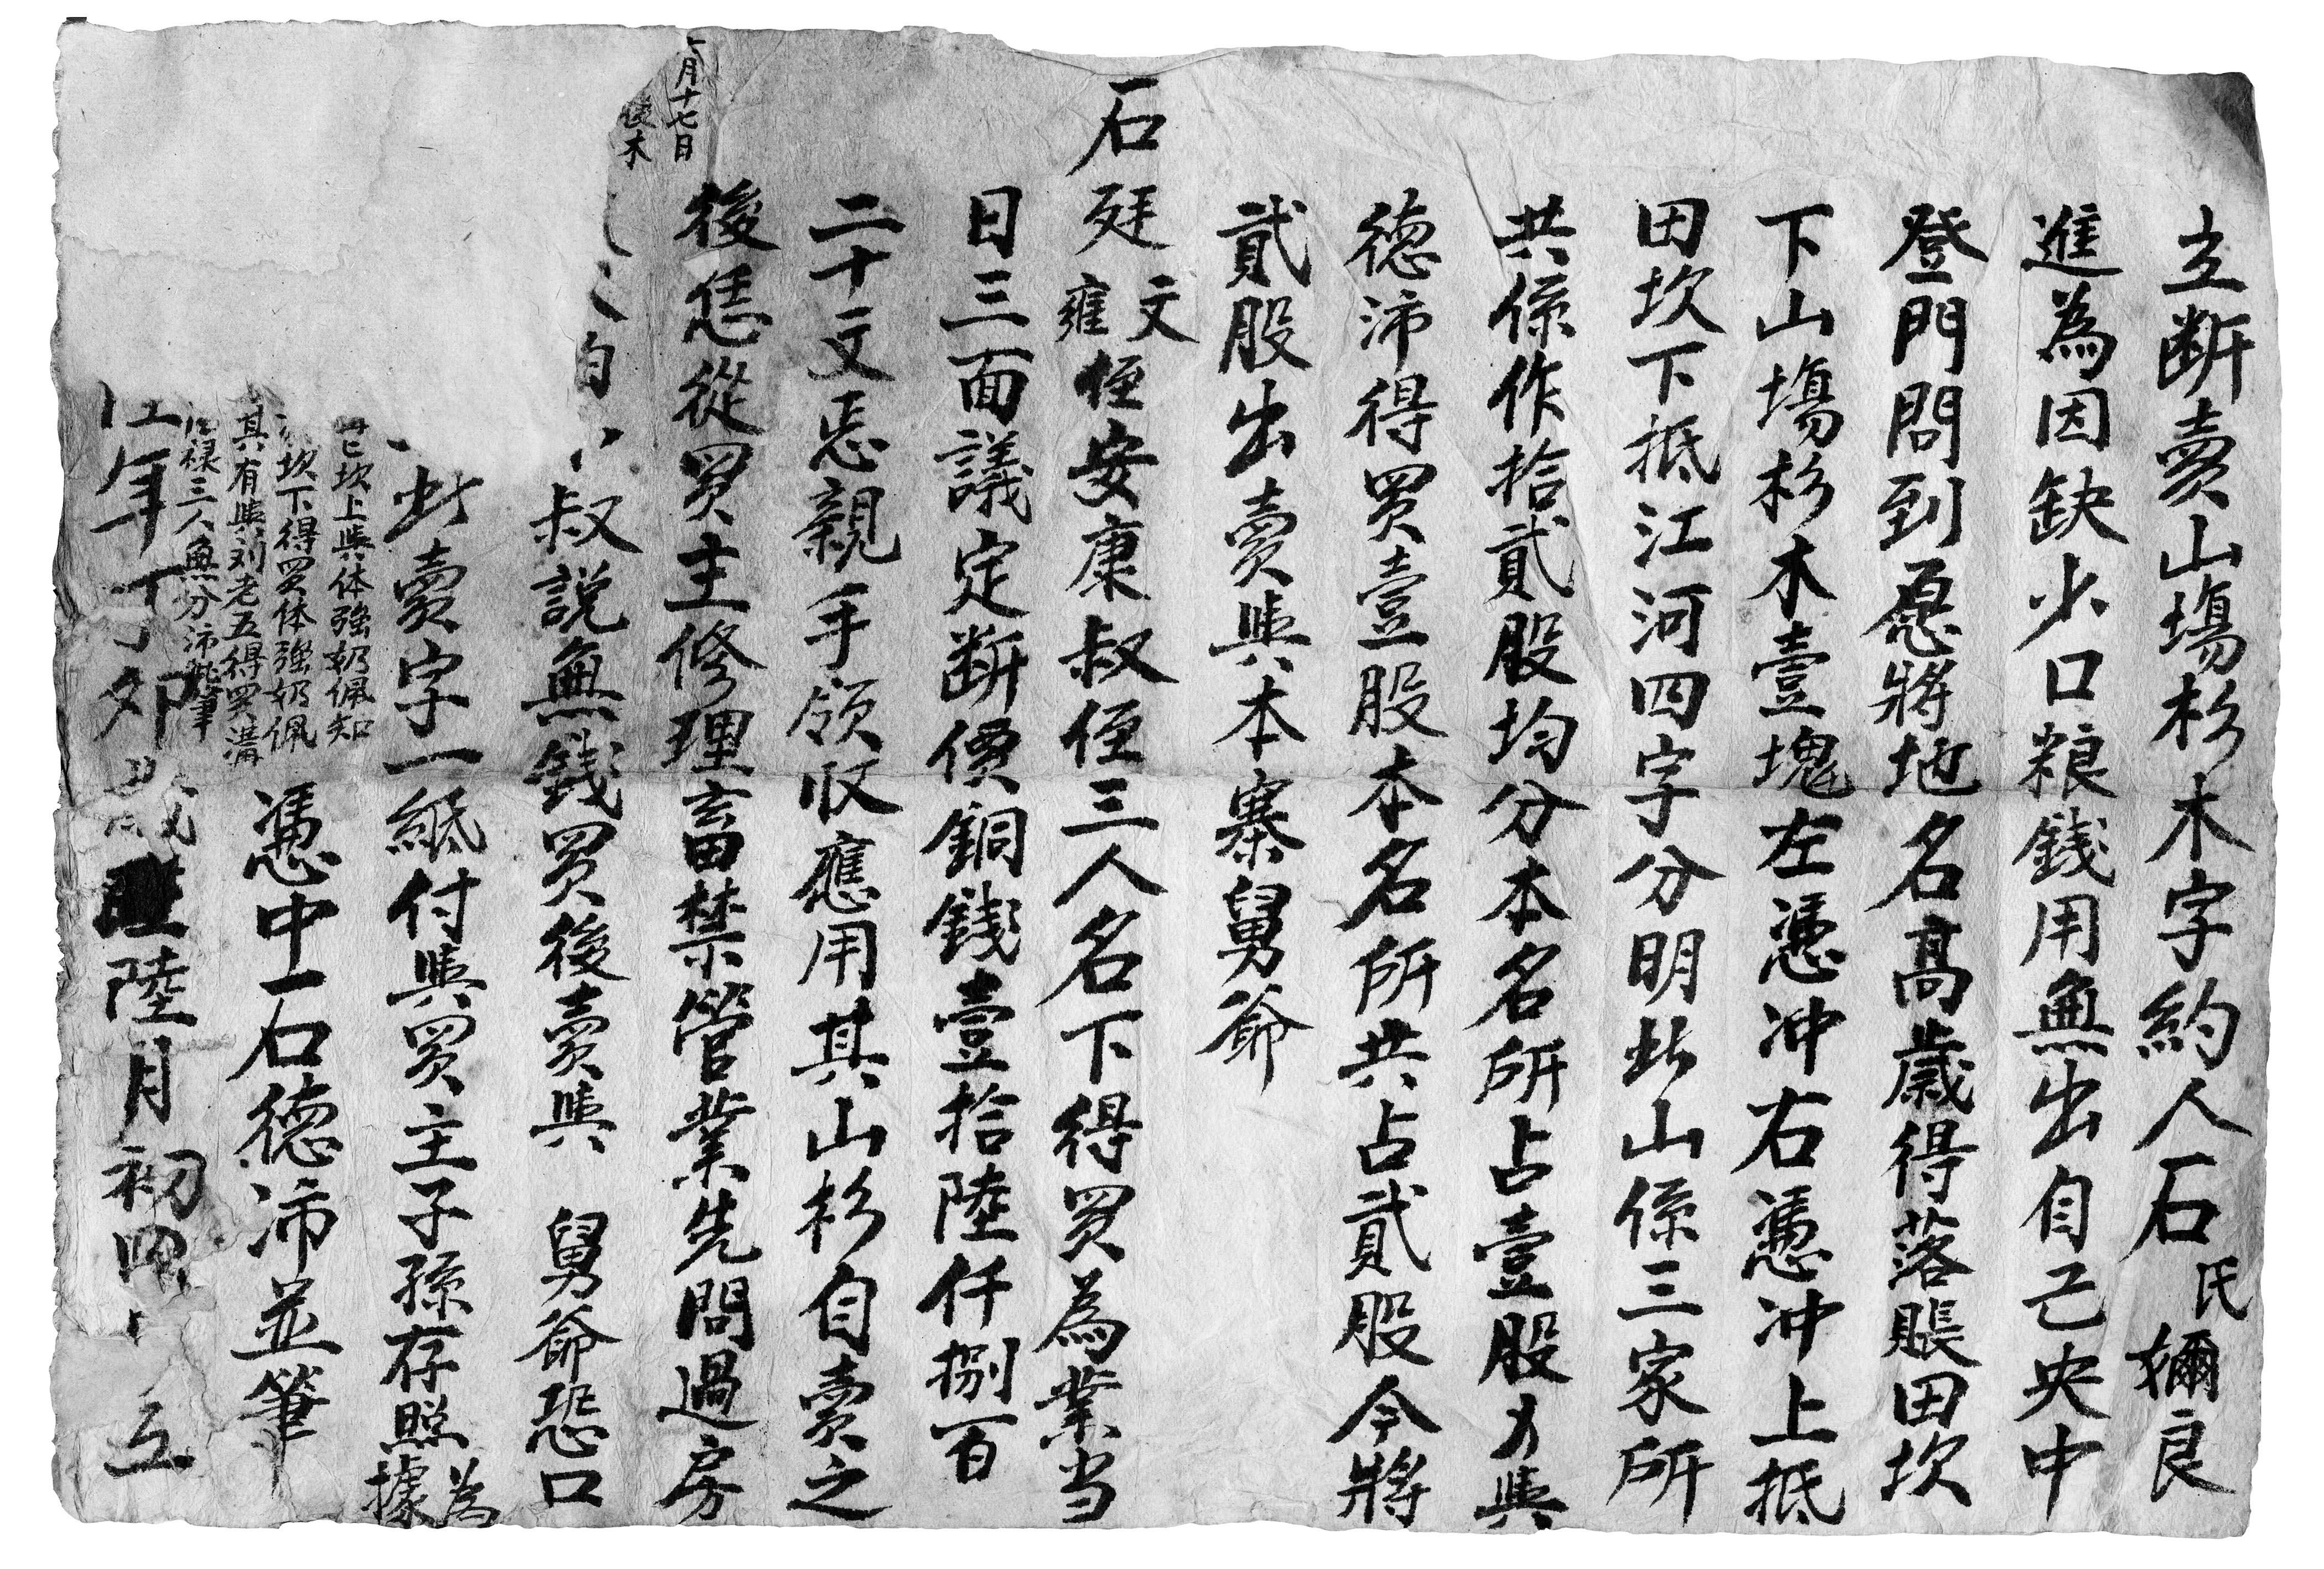 立断賣山塲杉木字約人石氏嬭良
進為因缺少口粮錢用無出自己央中
登門問到愿將地名髙歲得落賬田坎
下山塲杉木壹塊左凴冲右凴冲上抵
田坎下抵江河四字分明此山係三家所
共係作拾貳股均分本名所占壹股又與
德沛得買壹股本名所共占貳股今將
貳股出賣與本寨舅爺
石廷文雍侄安康叔侄三人名下得買為業当
日三面議定断價銅錢壹拾陸仟捌百
二十文恁親手領収應用其山杉自賣之
後恁從買主修理畜禁管業先問過房
叔說無錢買後賣與 舅爺恐口
此賣字一紙付與買主子孫存照為據
月十七日
木
坎上與体強奶佩知
坎下得買体強奶佩
其有與刘老五得買溝
禄三人無分沛筆
凴中一石德沛並筆
年丁卯歲陸月初四 立